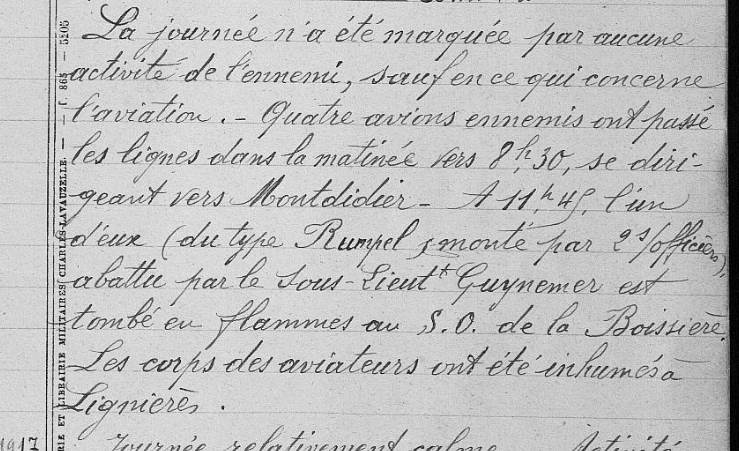 La journée n'a été marquée par aucune
activité de l'ennemi, sauf en ce qui concerne
l'aviation. - Quatre avions ennemis ont passé
les lignes dans la matinée vers 8h,30, se diri-
geant vers Montdidier - A 11h,45, l'un
d'eux (du type Rumpel, monté par 2 s/officiers),
abattu par le Sous-Lieutt Guynemer est
tombé en flammes au S.O. de la Boissière.
Les corps des aviateurs ont été inhumés à
Lignières.
1917 Journée relativement calme Activité
RIE ET LIBRAIRIE MILITAIRES CHARLES-LAVAUZELLE. — f. 865 — 5205